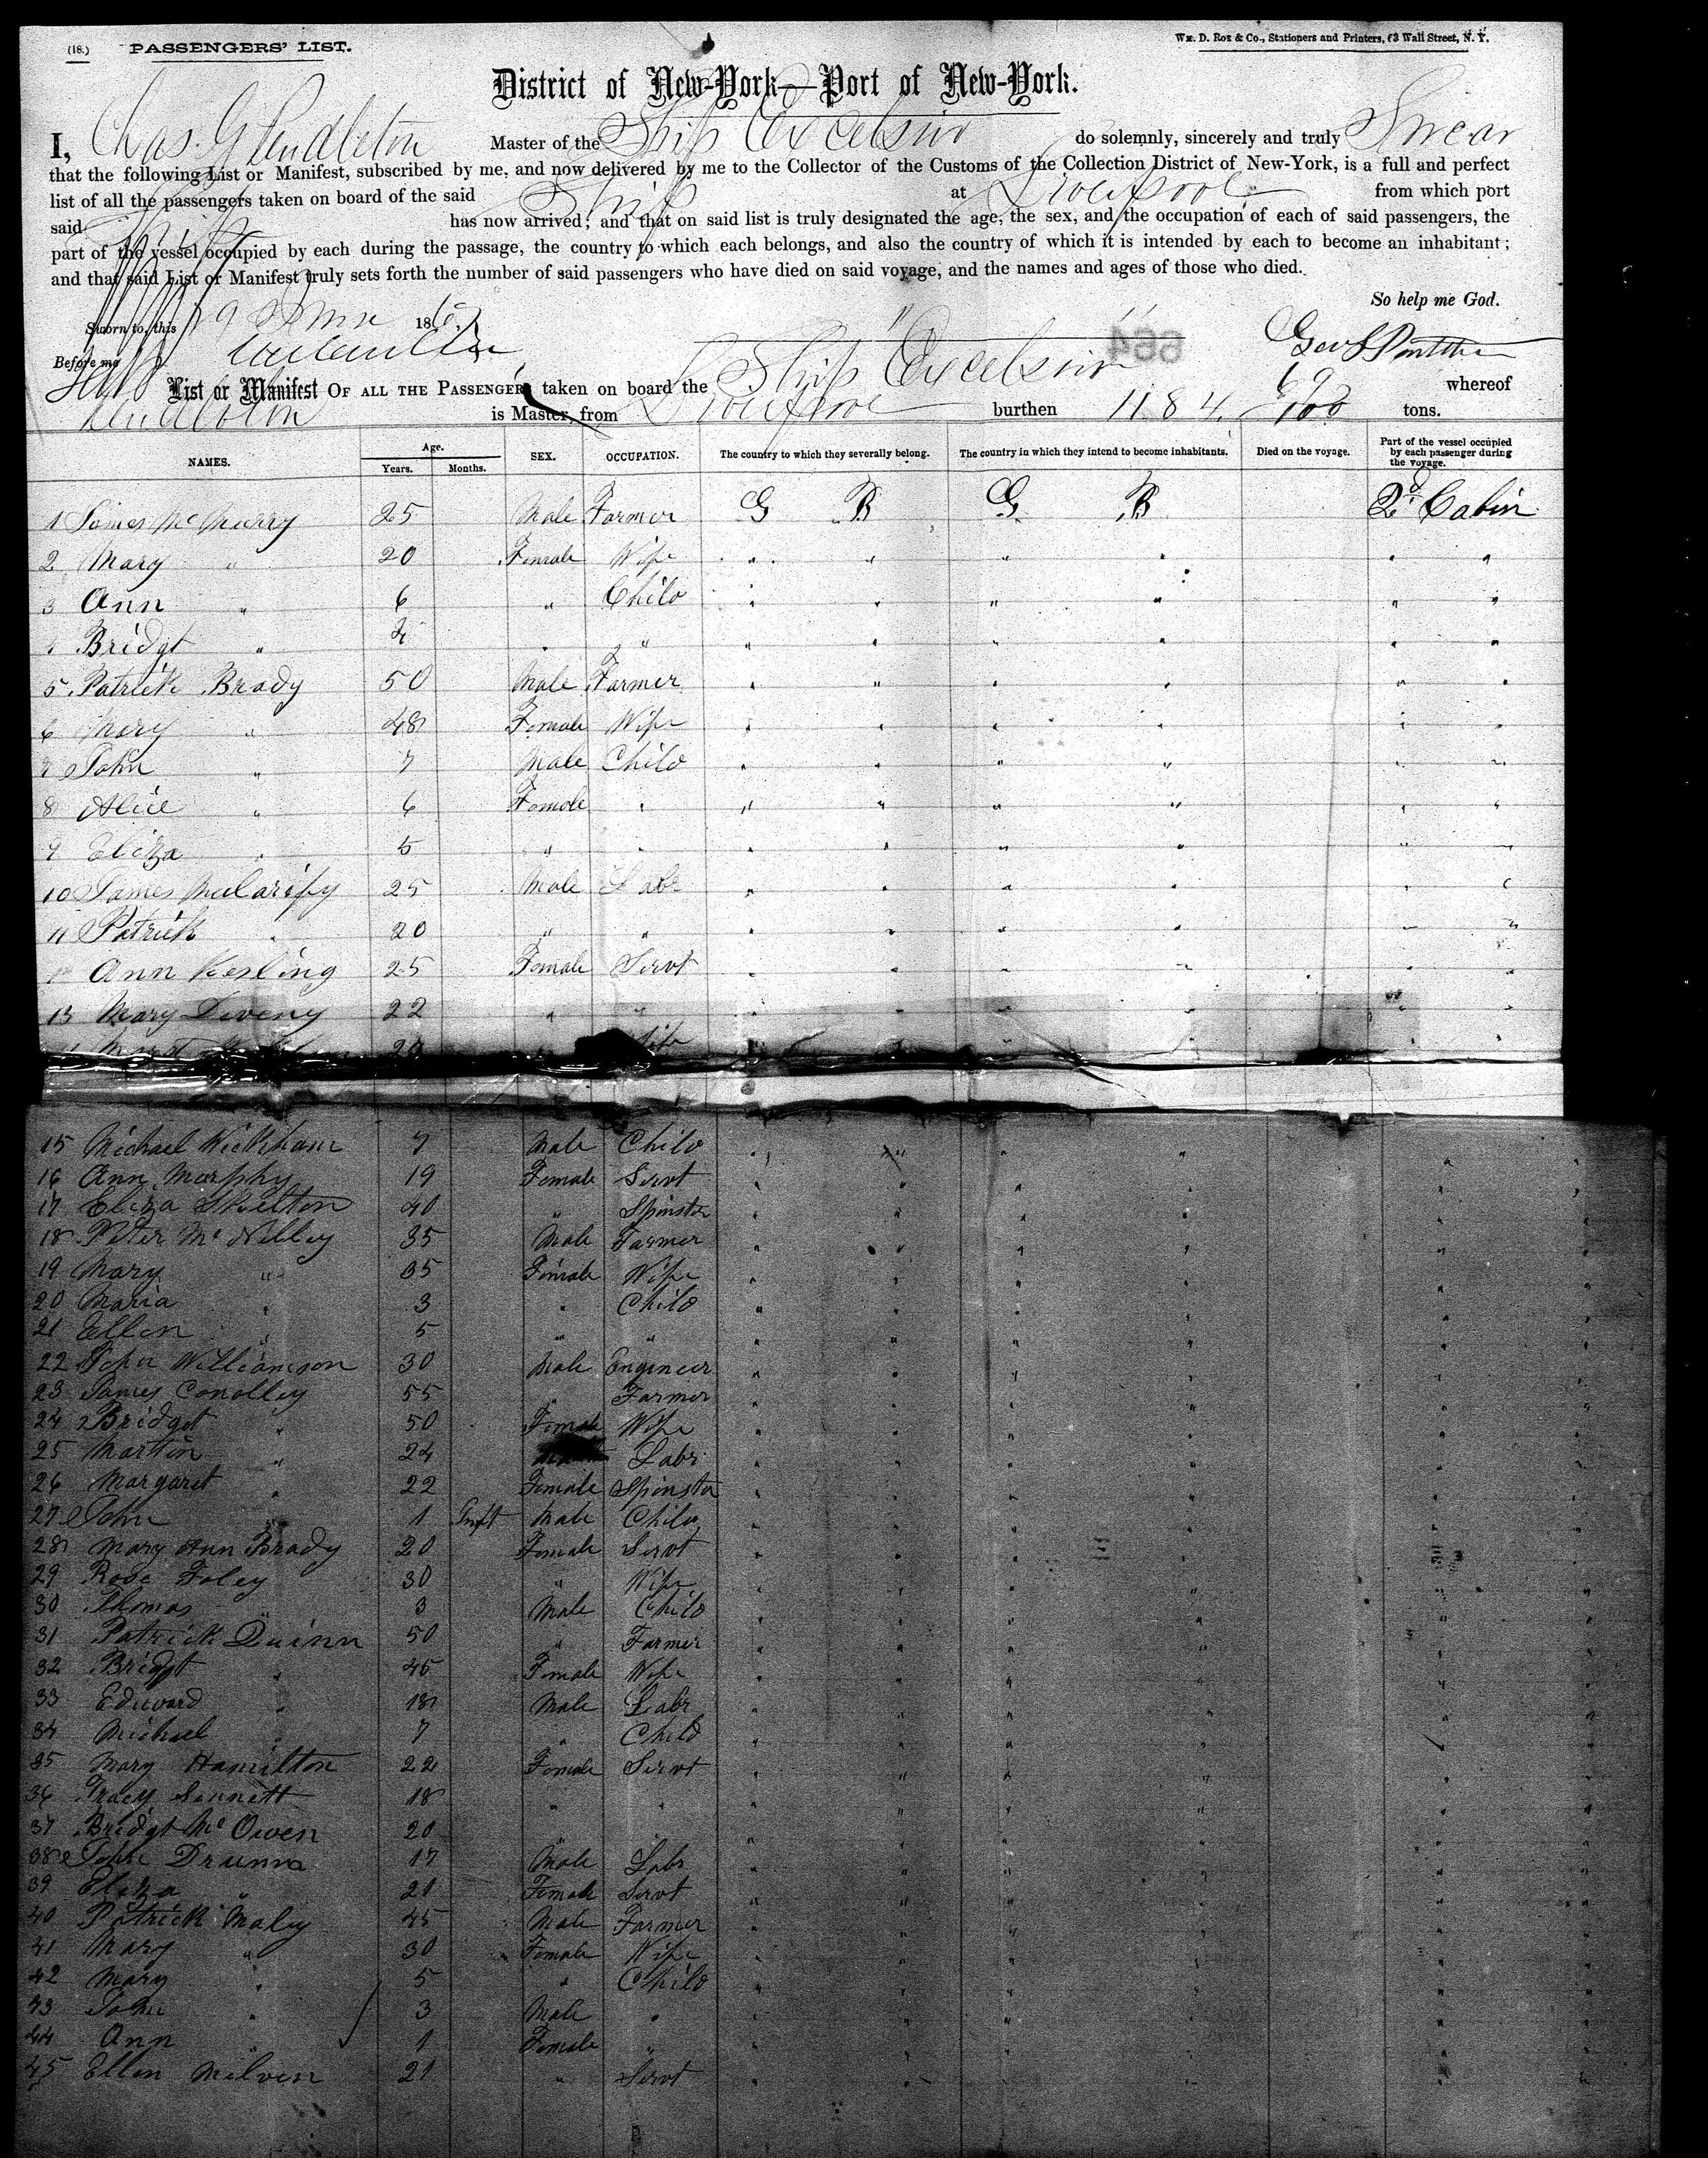 (18.) PASSENGERS' LIST. Wm. D. Roe & Co., Stationers and Printers, 63 Wall Street, N. Y.
District of New-York—Port of New-York.
I, Chas. G Pendleton Master of the Ship Excelsior do solemnly, sincerely and truly Swear
that the following List or Manifest, subscribed by me, and now delivered by me to the Collector of the Customs of the Collection District of New-York, is a full and perfect
list of all the passengers taken on board of the said Ship at Liverpool from which port
said Ship has now arrived; and that on said list is truly designated the age, the sex, and the occupation of each of said passengers, the
part of the vessel occupied by each during the passage, the country to which each belongs, and also the country of which it is intended by each to become an inhabitant;
and that said List or Manifest truly sets forth the number of said passengers who have died on said voyage, and the names and ages of those who died.
So help me God.
Sworn to, this 19 June 186
Before me
664
List or Manifest OF ALL THE PASSENGERS taken on board the Ship Excelsior whereof
Pendleton is Master, from Liverpool burthen 1184 69/100 tons.
NAMES. Age. Years. Months. SEX. OCCUPATION. The country to which they severally belong. The country in which they intend to become inhabitants. Died on the voyage. Part of the vessel occupied by each passenger during the voyage.
1 James McMurry 25 Male Farmer G B G B 2d Cabin
2 Mary " 20 Female Wife " " " " " "
3 Ann " 6 " Child " " " " " "
4 Bridgt " 4 " " " " " " " "
5 Patrick Brady 50 Male Farmer " " " " " "
6 Mary " 48 Female Wife " " " " " "
7 John " 7 Male Child " " " " " "
8 Alice " 6 Female " " " " " " "
9 Eliza " 5 " " " " " " " "
10 James 25 Male Labr " " " " " "
11 Patrick " 20 " " " " " " " "
12 Ann Kesling 25 Female Servt " " " " " "
13 Mary Deveny 22 " " " " " " " "
Wife " " " " " "
15 Michael Wickham 7 Male Child " " " " " "
16 Ann Murphy 19 Female Servt " " " " " "
17 Eliza Skelton 40 " Spinster " " " " " "
18 Peter Mc Nelley 35 Male Farmer " " " " " "
19 Mary " 35 Female Wife " " " " " "
20 Maria " 3 " Child " " " " " "
21 Ellen " 5 " " " " " " " "
22 John Williamson 30 Male Engineer " " " " " "
23 James Conolley 55 " Farmer " " " " " "
24 Bridget " 50 Female Wife " " " " " "
25 Martin " 24 Labr " " " " " "
26 Margaret " 22 Female Spinster " " " " " "
27 John " 1 Inft Male Child " " " " " "
28 Mary Ann Brady 20 Female Servt " " " " " "
29 Rose Foley 30 " Wife " " " " " "
30 Thomas " 3 Male Child " " " " " "
31 Patrick Quinn 50 " Farmer " " " " " "
32 Bridgt " 45 Female Wife " " " " " "
33 Edward " 18 Male Labr " " " " " "
34 Michael " 7 " Child " " " " " "
35 Mary Hamilton 22 Female Servt " " " " " "
36 Tracy Sennett 18 " " " " " " " "
37 Bridgt Mc Owen 20 " " " " " " " "
38 John Drumm 17 Male Labr " " " " " "
39 Eliza " 21 Female Servt " " " " " "
40 Patrick Maley 45 Male Farmer " " " " " "
41 Mary " 30 Female Wife " " " " " "
42 Mary " 5 " Child " " " " " "
43 John " 3 Male " " " " " " "
44 Ann " 1 Female " " " " " " "
45 Ellen Milven 21 " Servt " " " " " "